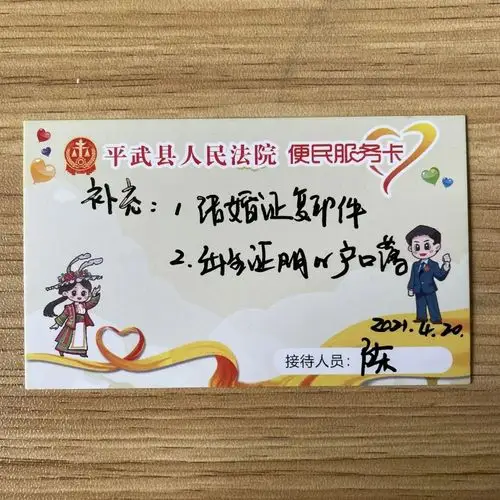 平武县人民法院 便民服务卡
补充：1 结婚证复印件
2. 出生证明 户口
2021.4.20.
接待人员：陈